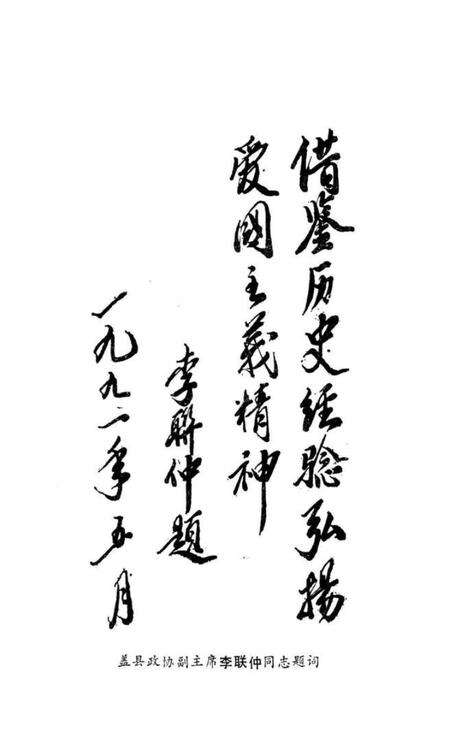 借鉴历史经验弘揚
爱國主義精神
李聯仲題
一九九二年五月
盖县政协副主席李联仲同志题词